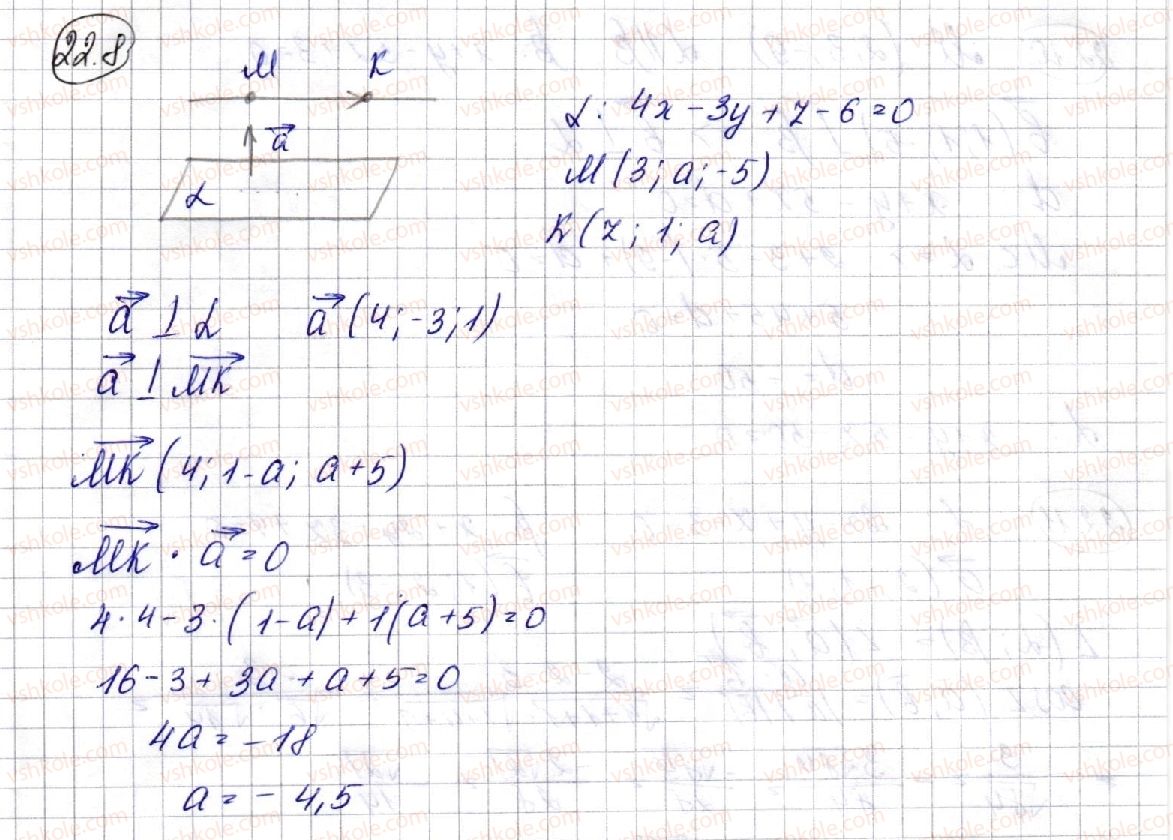 22.8
M K
a⃗
α
α: 4x - 3y + z - 6 = 0
M (3; a; -5)
K (7; 1; a)
a⃗ ⊥ α a⃗ (4; -3; 1)
a⃗ ⊥ MK⃗
MK⃗ (4; 1-a; a+5)
MK⃗ · a⃗ = 0
4 · 4 - 3 · (1-a) + 1(a+5) = 0
16 - 3 + 3a + a + 5 = 0
4a = -18
a = -4,5
vshkole.com